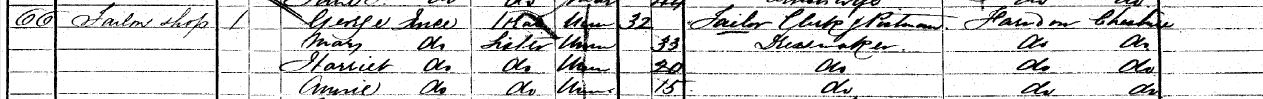 66 Tailor shop 1 George Ince Head Unm 32 Tailor Clerk & Postman Farndon Cheshire
Mary do Sister Unm 33 Dressmaker do do
Harriet do do Unm 20 do do do
Annie do do Unm 15 do do do